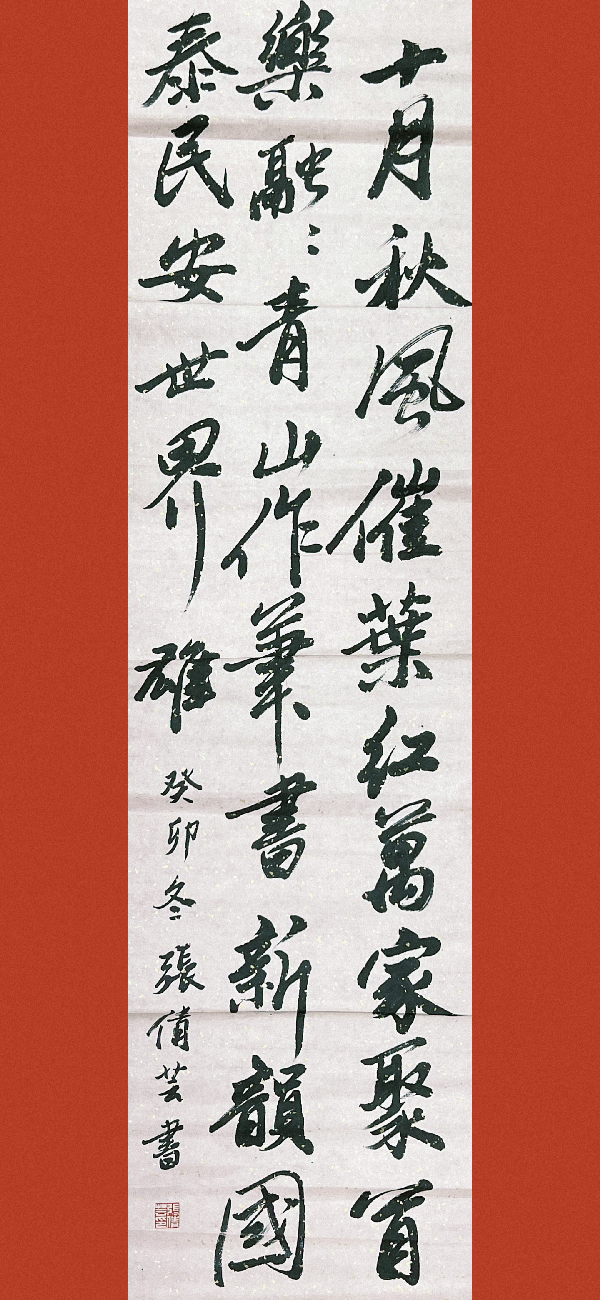 十月秋風催葉紅萬家聚首
樂融〻青山作筆書新韻國
泰民安世界雄
癸卯冬張倩芸書